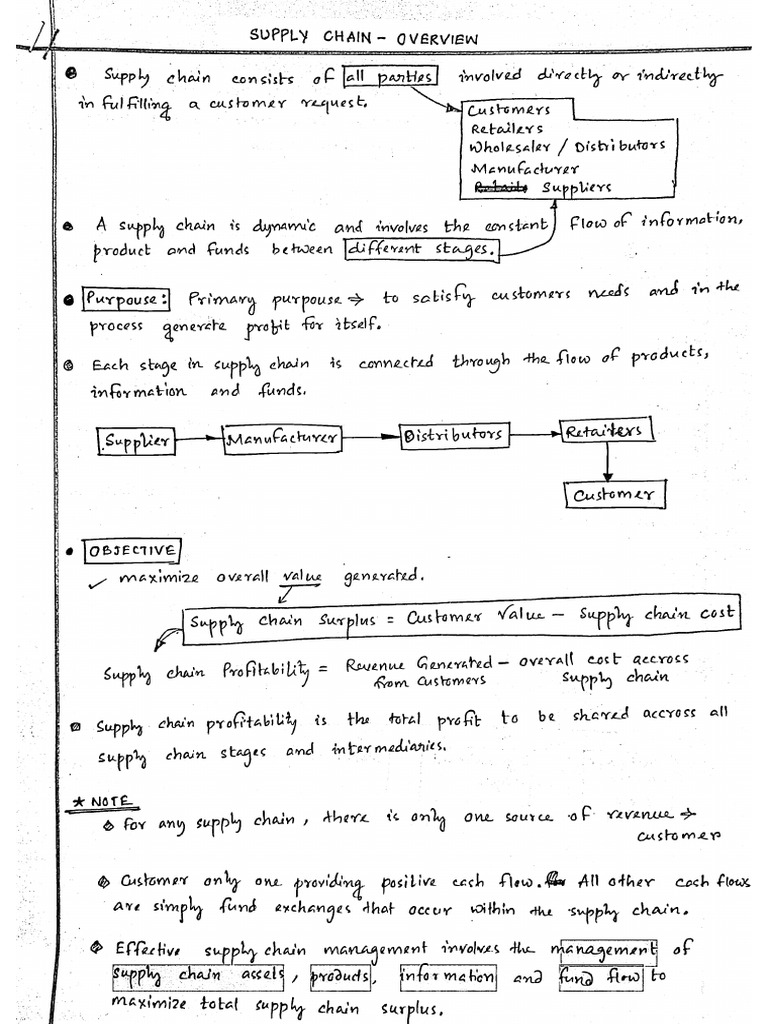 SUPPLY CHAIN - OVERVIEW
Supply chain consists of all parties involved directly or indirectly
in fulfilling a customer request.
Customers
Retailers
Wholesaler / Distributors
Manufacturer
Suppliers
A supply chain is dynamic and involves the constant flow of information,
product and funds between different stages.
Purpouse: Primary purpouse → to satisfy customers needs and in the
process generate profit for itself.
Each stage in supply chain is connected through the flow of products,
information and funds.
Supplier → Manufacturer → Distributors → Retailers
Customer
OBJECTIVE
✓ maximize overall value generated.
Supply chain Surplus = Customer Value - Supply chain cost
Supply chain Profitability = Revenue Generated - overall cost accross
from customers supply chain
Supply chain profitability is the total profit to be shared accross all
supply chain stages and intermediaries.
* NOTE
For any supply chain, there is only one source of revenue →
customer
Customer only one providing positive cash flow. All other cash flows
are simply fund exchanges that occur within the supply chain.
Effective supply chain management involves the management of
supply chain assets, products, information and fund flow to
maximize total supply chain surplus.